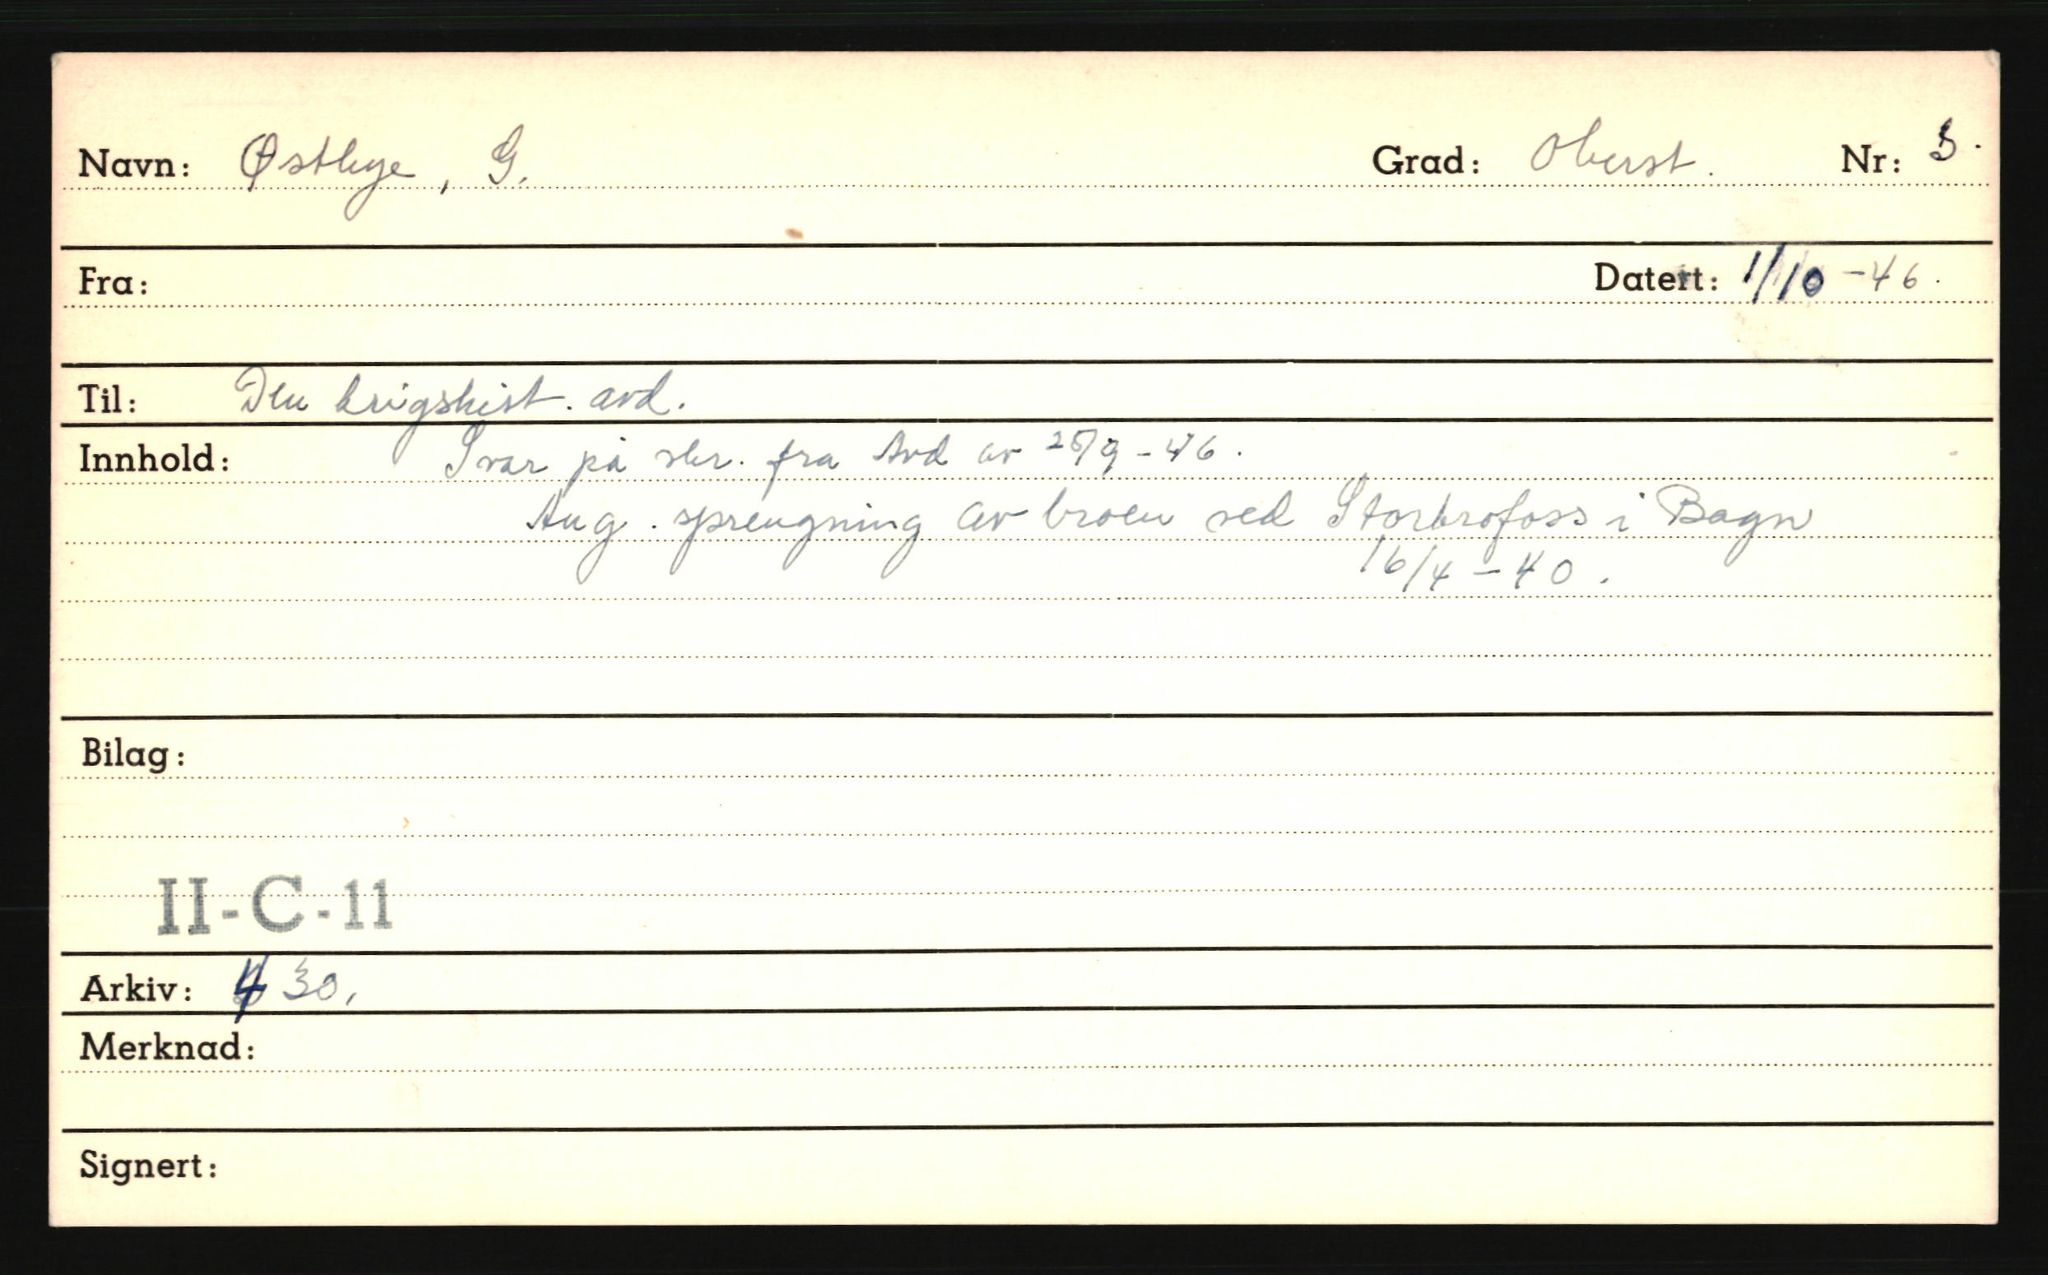 Navn: Østbye, G. Grad: Oberst. Nr: 3.
Fra: Datert: 1/10-46.
Til: Den krigshist. avd.
Innhold: Svar på skr. fra Avd av 25/9-46.
Ang. sprengning av broen ved Storbrofoss i Bagn
16/4-40.
Bilag:
II-C-11
Arkiv: 430.
Merknad:
Signert: